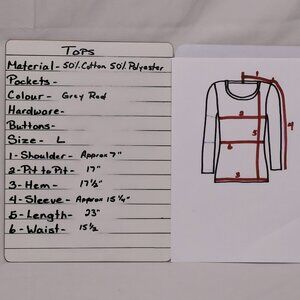 Tops
Material - 50% Cotton 50% Polyester
Pockets -
Colour - Grey Red
Hardware -
Buttons -
Size - L
1 - Shoulder - Approx 7"
2 - Pit to Pit - 17"
3 - Hem - 17 1/2"
4 - Sleeve - Approx 15 1/4"
5 - Length - 23"
6 - Waist - 15 1/2
1
2
5
4
6
3